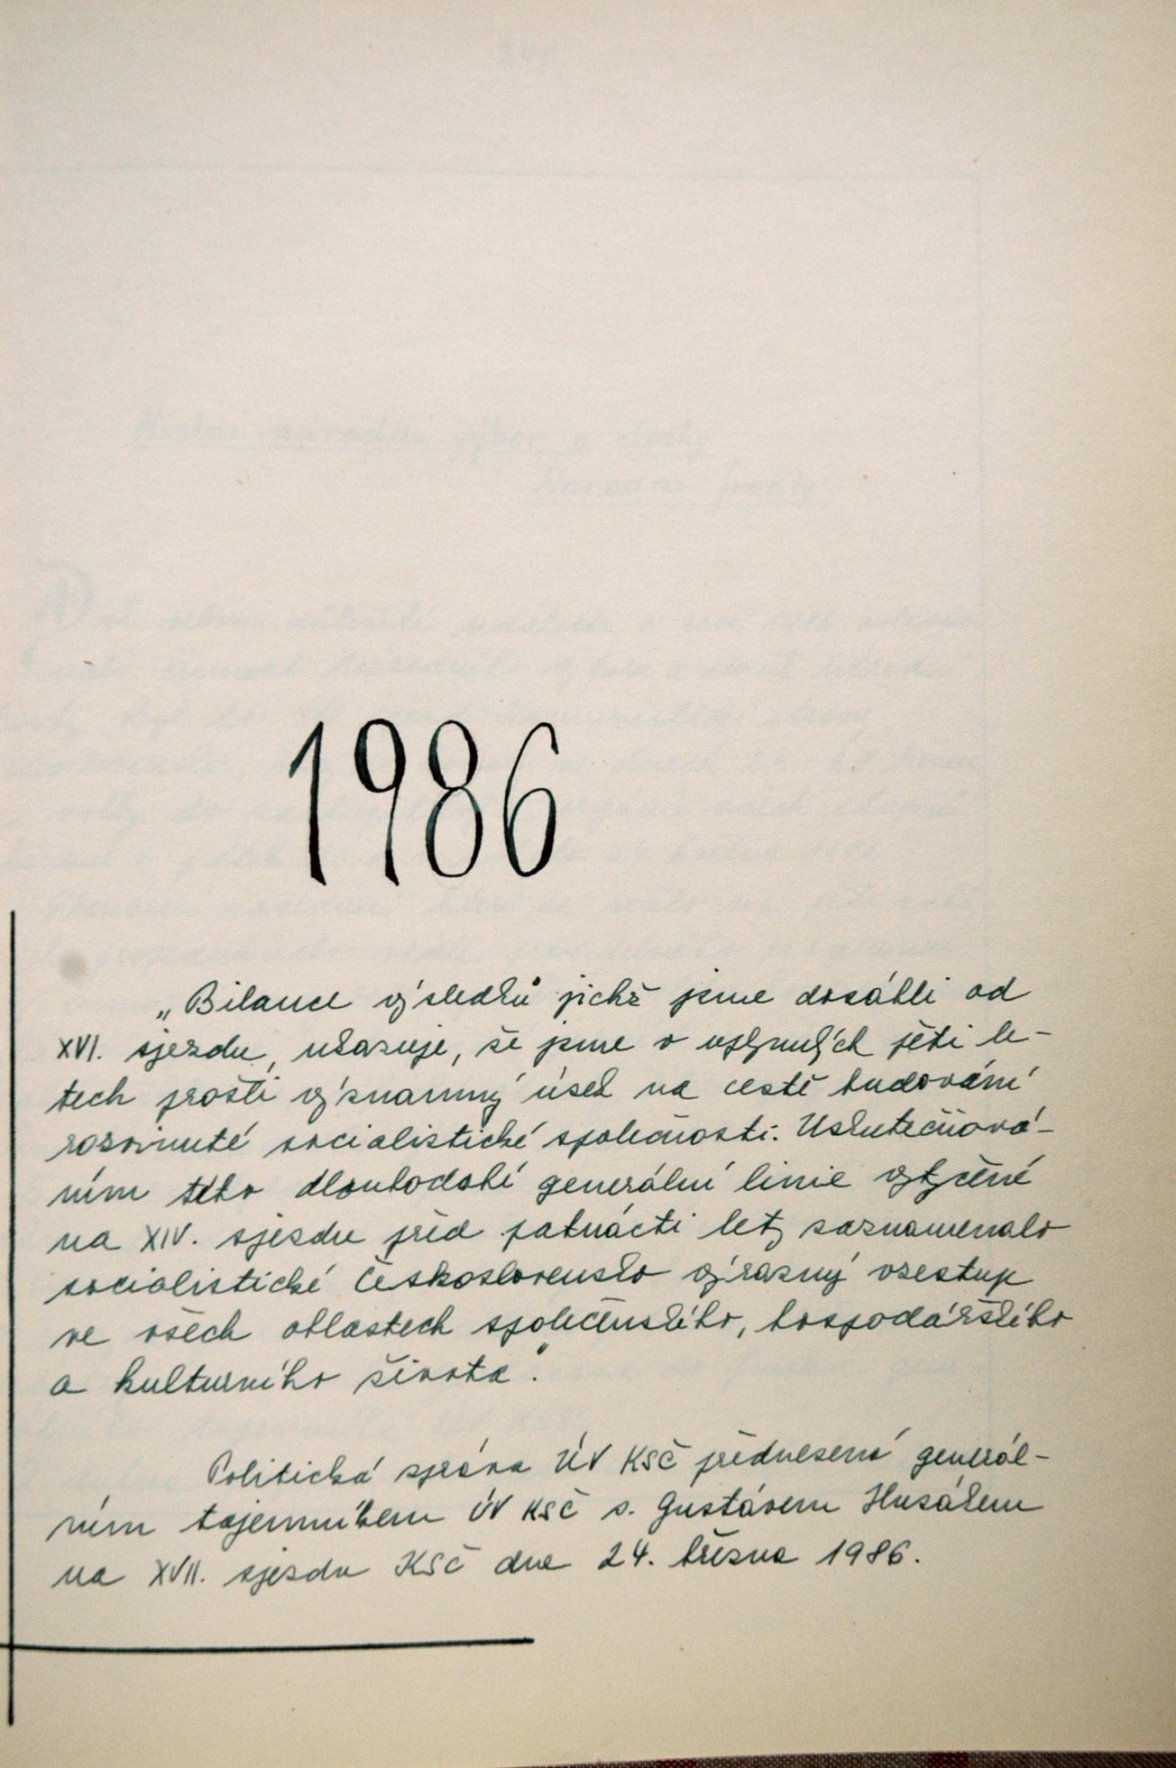 1986
„Bilance výsledků jichž jsme dosáhli od
XVI. sjezdu, ukazuje, že jsme v uplynulých pěti le-
tech prošli významný úsek na cestě budování
rozvinuté socialistické společnosti. Uskutečňová-
ním této dlouhodobé generální linie vytyčené
na XIV. sjezdu před patnácti lety zaznamenalo
socialistické Československo výrazný vzestup
ve všech oblastech společenského, hospodářského
a kulturního života".
Politická zpráva ÚV KSČ přednesená generál-
ním tajemníkem ÚV KSČ s. Gustávem Husákem
na XVII. sjezdu KSČ dne 24. března 1986.